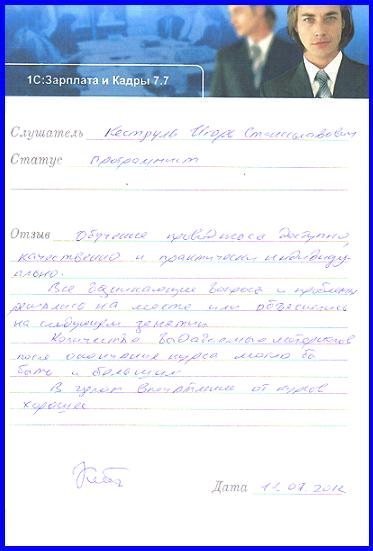 1С:Зарплата и Кадры 7.7
Слушатель Кеструль Игорь Станиславович
Статус программист
Отзыв Обучение проводилося доступно,
качественно и практически индивиду-
ально.
Все возникающие вопросы и проблемы
решались на месте или объяснялись
на следующем занятии.
Количество выдаваемых материалов
после окончания курса могло бы
быть и большим.
В целом впечатление от курсов
хорошее
Дата 12.07.2012